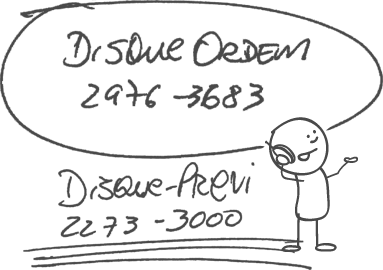 DISQUE ORDEM
2976-3683
DISQUE-PREVI
2273-3000